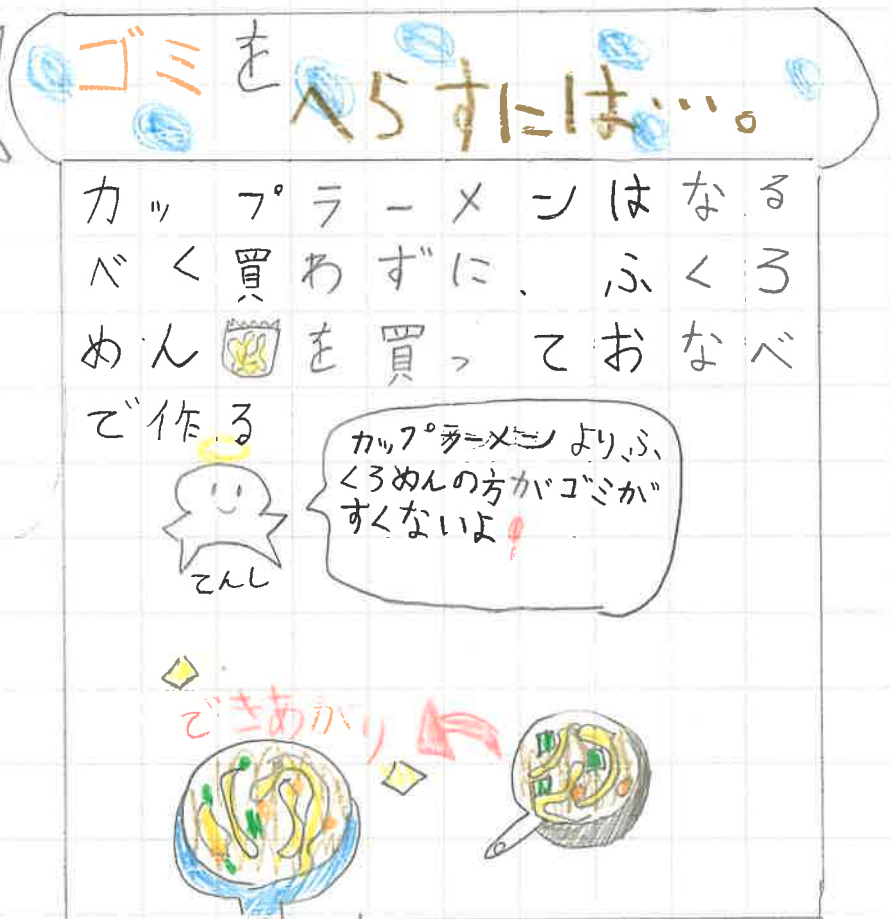 ゴミを
へらすには…。
カップラーメンはなる
べく買わずに、ふくろ
めんを買っておなべ
で作る
カップラーメンより、ふ
くろめんの方がゴミが
すくないよ！
てんし
できあがり